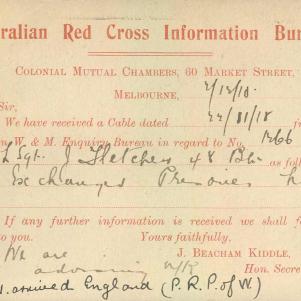 ralian Red Cross Information Bu
COLONIAL MUTUAL CHAMBERS, 60 MARKET STREET,
MELBOURNE, 2/12/18.
Sir,
We have received a Cable dated 27/11/18
n W. & M. Enquiry Bureau in regard to No. 1266
L Sgt. J Fletcher 48 Bn. as follo
Exchanged Prisoner
If any further information is received we shall f
to you. Yours faithfully,
We are J. BEACHAM KIDDLE,
advising N/K Hon. Secre
arrived England (P.R.P. of W.)